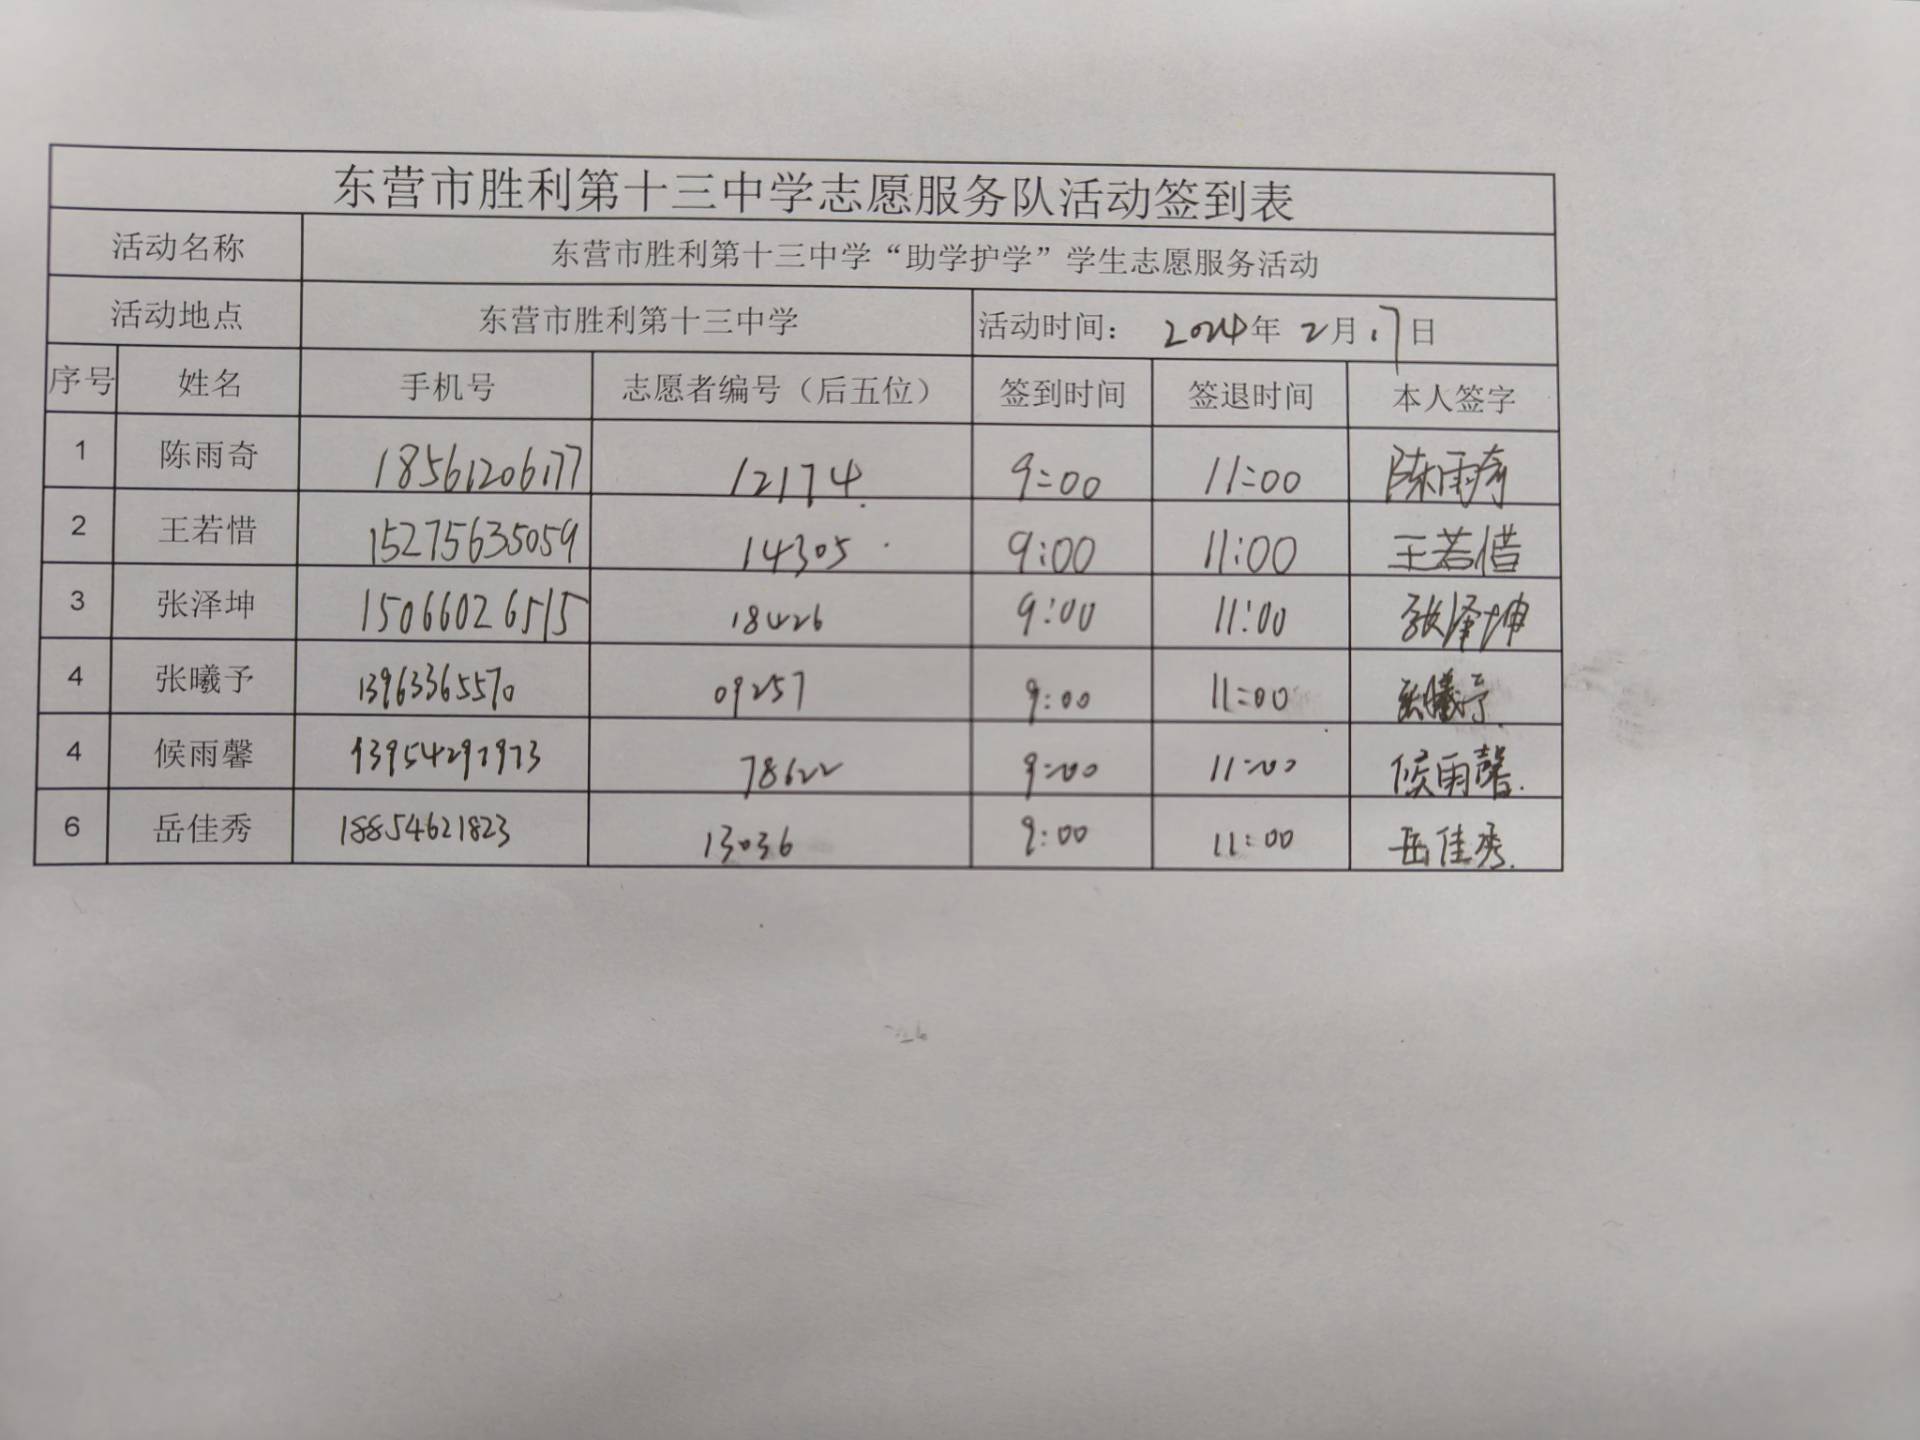 东营市胜利第十三中学志愿服务队活动签到表
活动名称 东营市胜利第十三中学“助学护学”学生志愿服务活动
活动地点 东营市胜利第十三中学 活动时间： 2024年 2月17日
序号 姓名 手机号 志愿者编号（后五位） 签到时间 签退时间 本人签字
1 陈雨奇 18561206177 12174. 9:00 11:00 陈雨奇
2 王若惜 15275635059 14305 9:00 11:00 王若惜
3 张泽坤 15066026515 18426 9:00 11:00 张泽坤
4 张曦予 13963365570 09257 9:00 11:00 张曦予
4 候雨馨 13954297973 78622 9:00 11:00 候雨馨.
6 岳佳秀 18854621823 13036 9:00 11:00 岳佳秀.